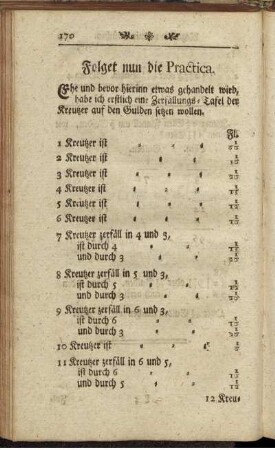 170
Folget nun die Practica.
Ehe und bevor hierinn etwas gehandelt wird,
habe ich erstlich eine Zerfallungs-Tafel der
Kreutzer auf den Gulden setzen wollen.
Fl.
1 Kreutzer ist 1/60
2 Kreutzer ist 1/30
3 Kreutzer ist 1/20
4 Kreutzer ist 1/15
5 Kreutzer ist 1/12
6 Kreutzer ist 1/10
7 Kreutzer zerfäll in 4 und 3,
ist durch 4 1/15
und durch 3 1/20
8 Kreutzer zerfäll in 5 und 3,
ist durch 5 1/12
und durch 3 1/20
9 Kreutzer zerfäll in 6 und 3,
ist durch 6 1/10
und durch 3 1/20
10 Kreutzer ist 1/6
11 Kreutzer zerfäll in 6 und 5,
ist durch 6 1/10
und durch 5 1/12
12 Kreu-